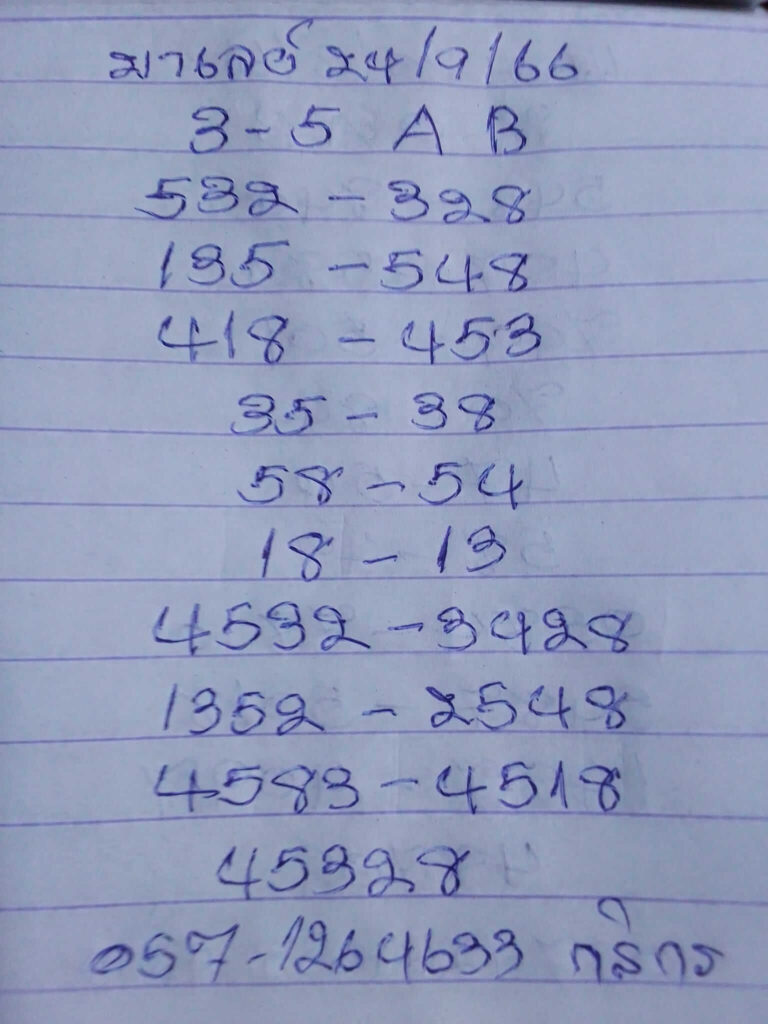 มาเลย์ 24/9/66
3-5 A B
532 - 328
135 - 548
418 - 453
35 - 38
58 - 54
18 - 13
4532 - 3428
1352 - 2548
4583 - 4518
45328
057-1264633 กสิกร